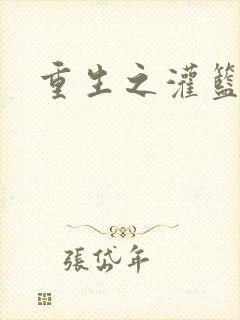 重生之灌籃
張岱年